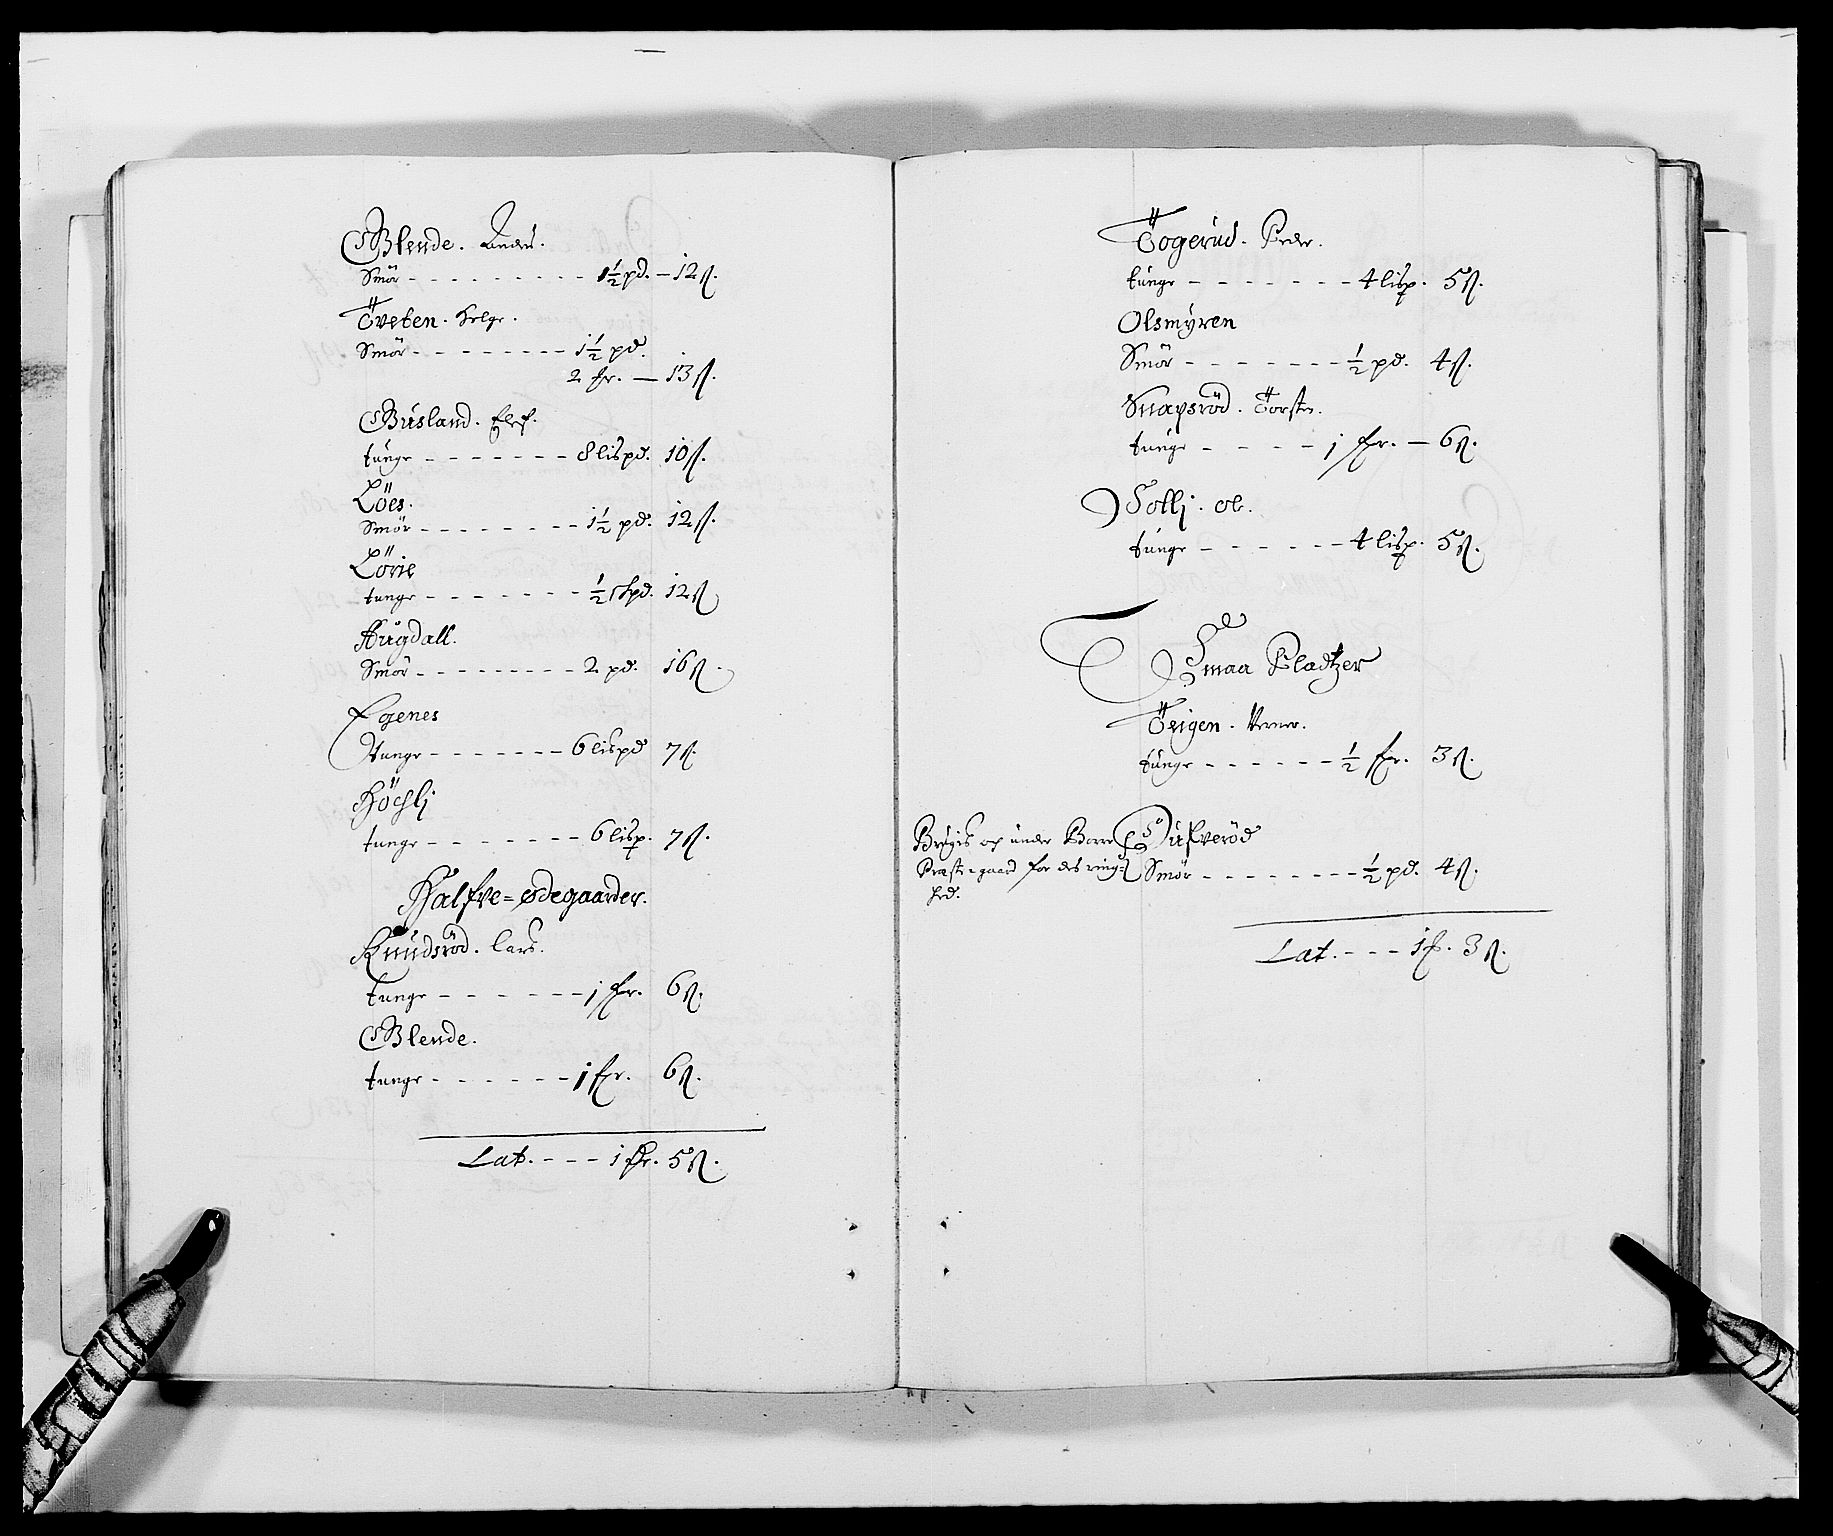 Blende. Anders.
Smör - - - - - - - - - 1½ pd. - 12 ß.
Tveten. Helge.
Smör - - - - - - - - 1½ pd.
2 fr. — 13 ß.
Busland. Elef.
tunge - - - - - - - 8 lispd. 10 ß.
Löes.
Smör - - - - - - - - 1½ pd. 12 ß.
Lörie
tunge - - - - - - - ½ Skpd. 12 ß
Hugdall.
Smör - - - - - - - - 2 pd. 16 ß.
Egenes
tunge - - - - - - - 6 lispd 7 ß.
Högli
tunge - - - - - - - 6 lisp. 7 ß.
Halfve=ødegaarder.
Knudsröd. Lars.
tunge - - - - - - 1 fr. 6 ß.
Blende.
tunge - - - - - - 1 fr. 6 ß.
Lat. - - - 1 fr. 5 ß.
Togerud. Peder.
tunge - - - - - - - 4 lisp. 5 ß.
Olsmyren
Smör - - - - - - - ½ pd. 4 ß.
Snapsröd. Torsten.
tunge - - - - 1 fr. — 6 ß.
Solli. ol.
tunge - - - - - - 4 lisp. 5 ß.
Smaa Pladtzer
Teigen. Verner.
tunge - - - - - - ½ fr. 3 ß.
Brugis och under Borre
Præstegaard for des ringhed.
Tufveröd
Smör - - - - - - - - ½ pd. 4 ß.
Lat. - - - 1 f. 3 ß.